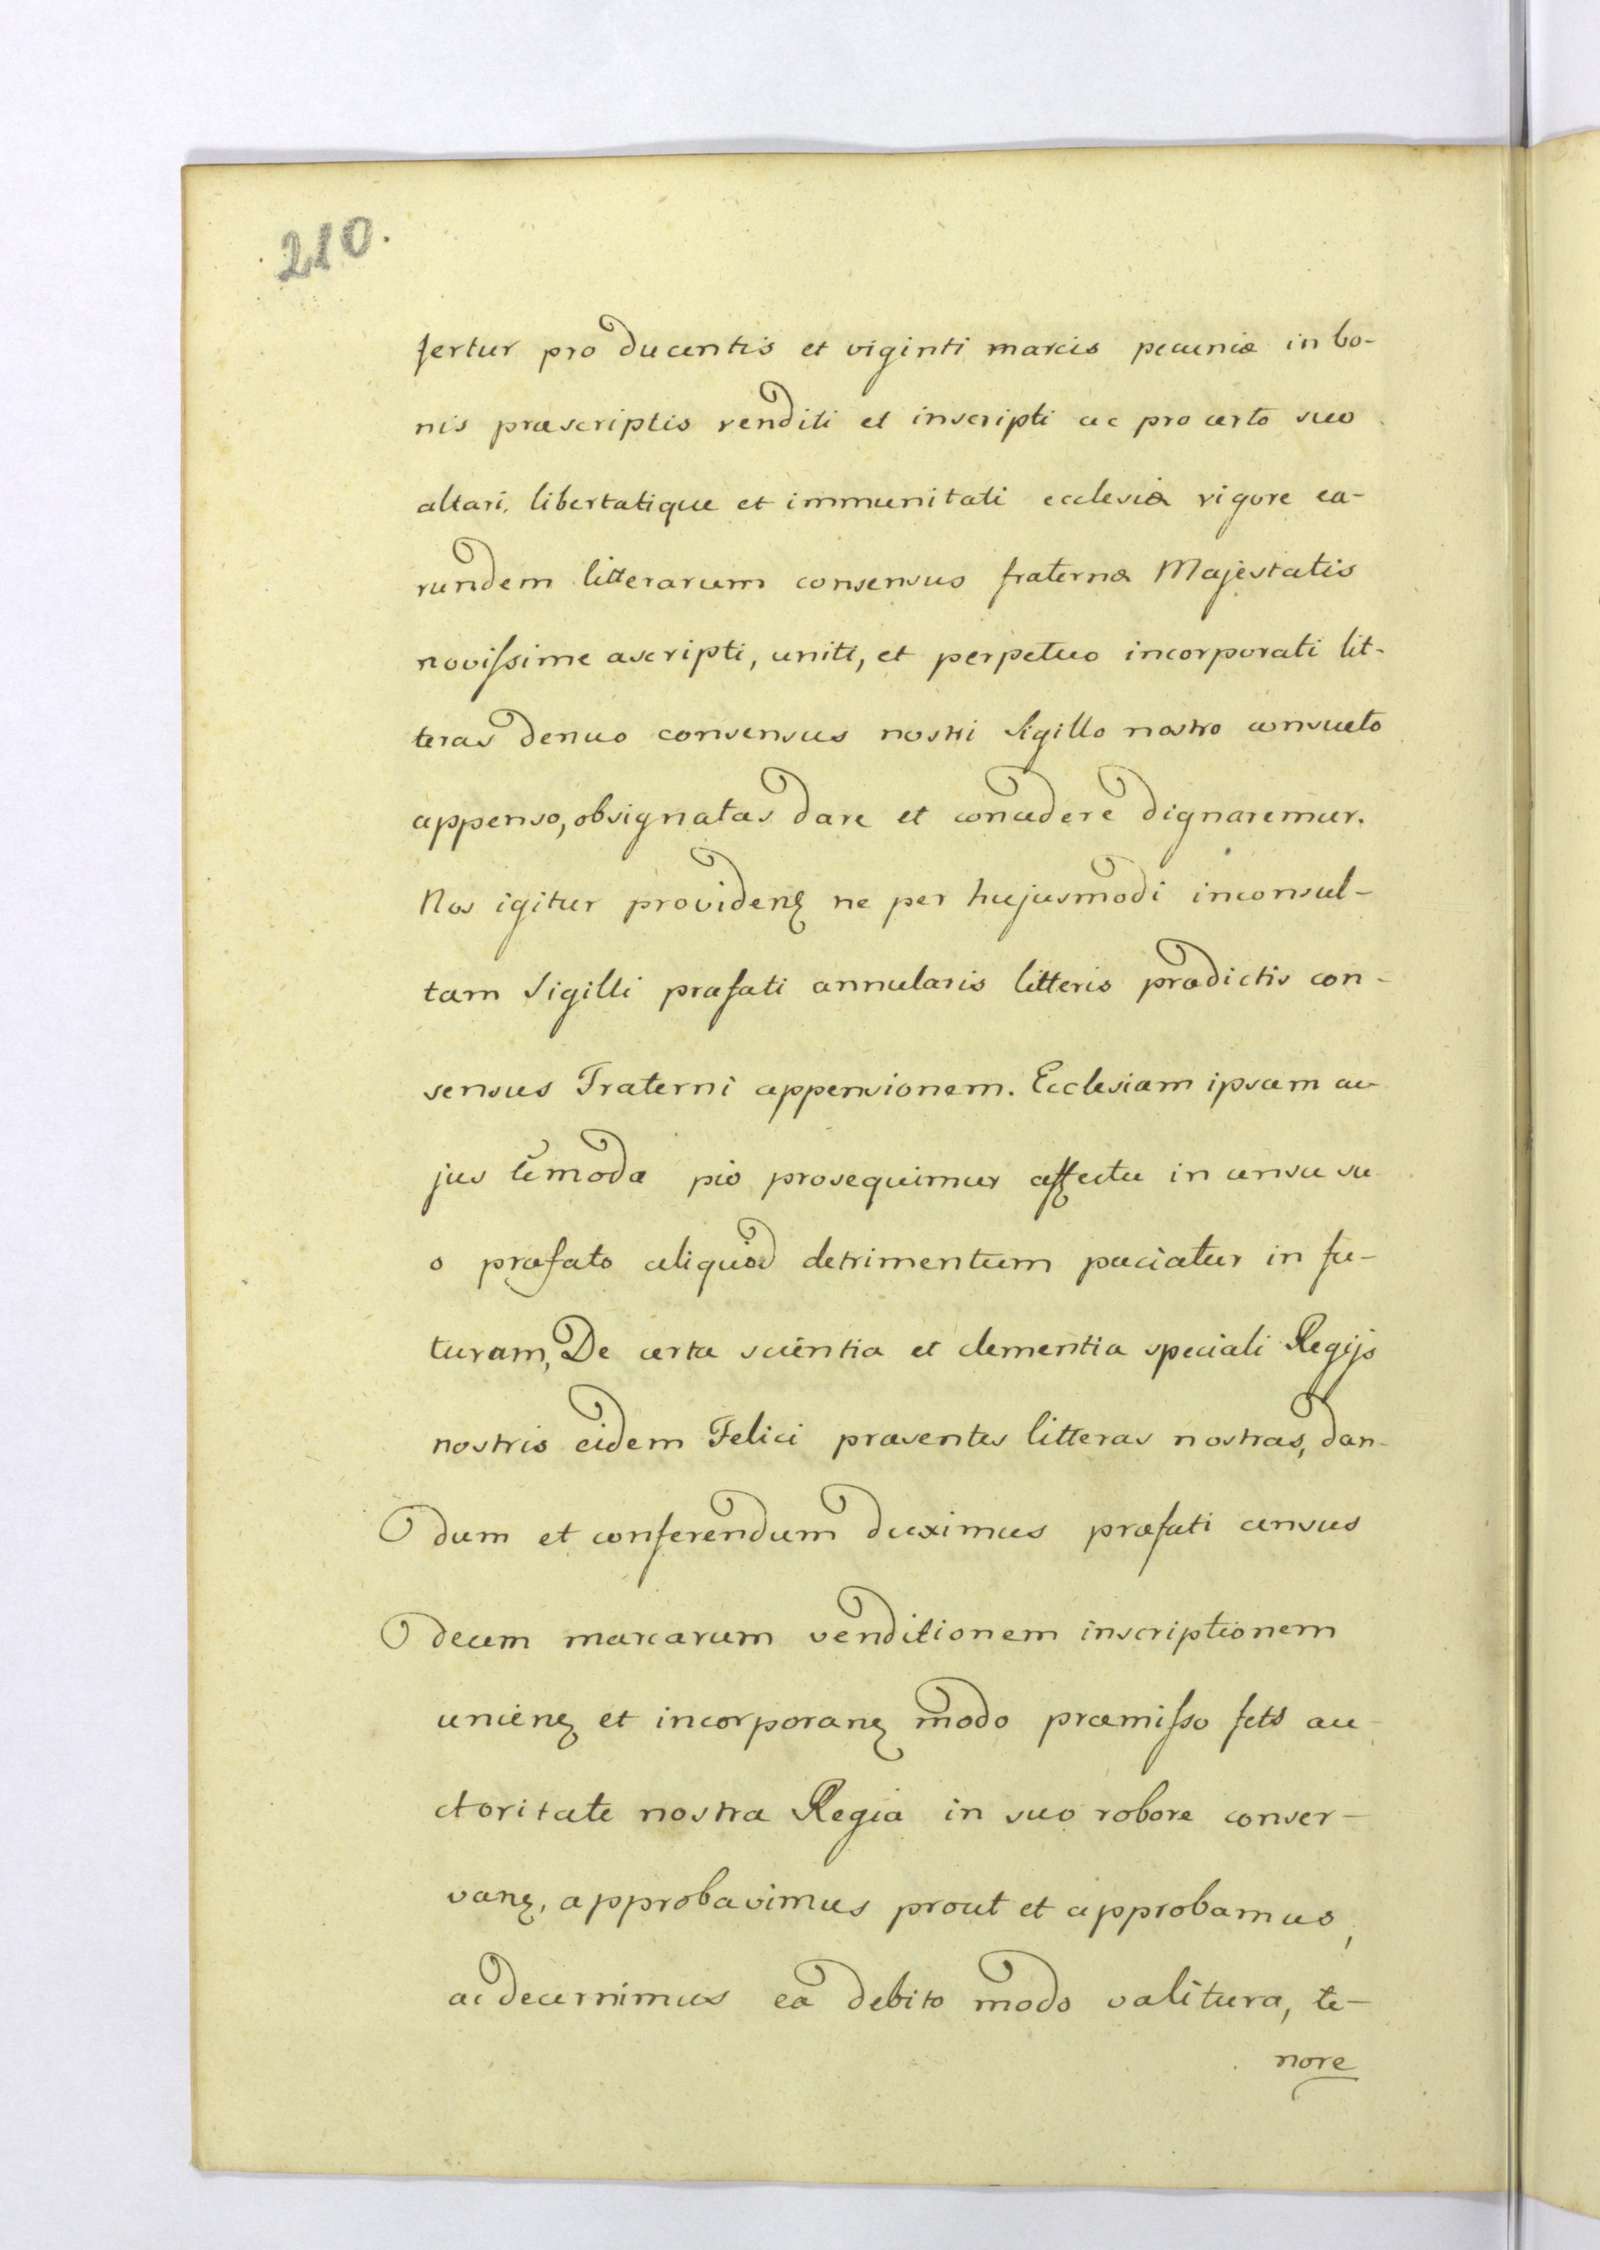 210.
fertur pro ducentis et viginti marcis pecuniæ in bo-
nis præscriptis venditi et inscripti ac pro certo suo
altari, libertatique et immunitati ecclesiæ vigore ea-
rundem litterarum consensus fraternæ Majestatis
novissime ascripti, uniti, et perpetuo incorporati lit-
teras denuo consensus nostri Sigillo nostro consueto
appenso, obsignatas dare et concedere dignaremur.
Nos igitur providenꝫ ne per hujusmodi inconsul-
tam Sigilli præfati annularis litteris prædictis con-
sensus Fraterni appensionem. Ecclesiam ipsam cu-
jus modæ pio prosequimur affectu in censu su-
o præfato aliquod detrimentum paciatur in fu-
turam, De certa scientia et clementia speciali Regijs
nostris eidem Felici præsentes litteras nostras, dan-
dum et conferendum duximus præfati census
decem marcarum venditionem inscriptionem
unienꝫ et incorporanꝫ modo præmisso fcts au-
ctoritate nostra Regia in suo robore conser-
vanꝫ, approbavimus prout et approbamus,
ac decernimus ea debito modo valitura, te-
nore